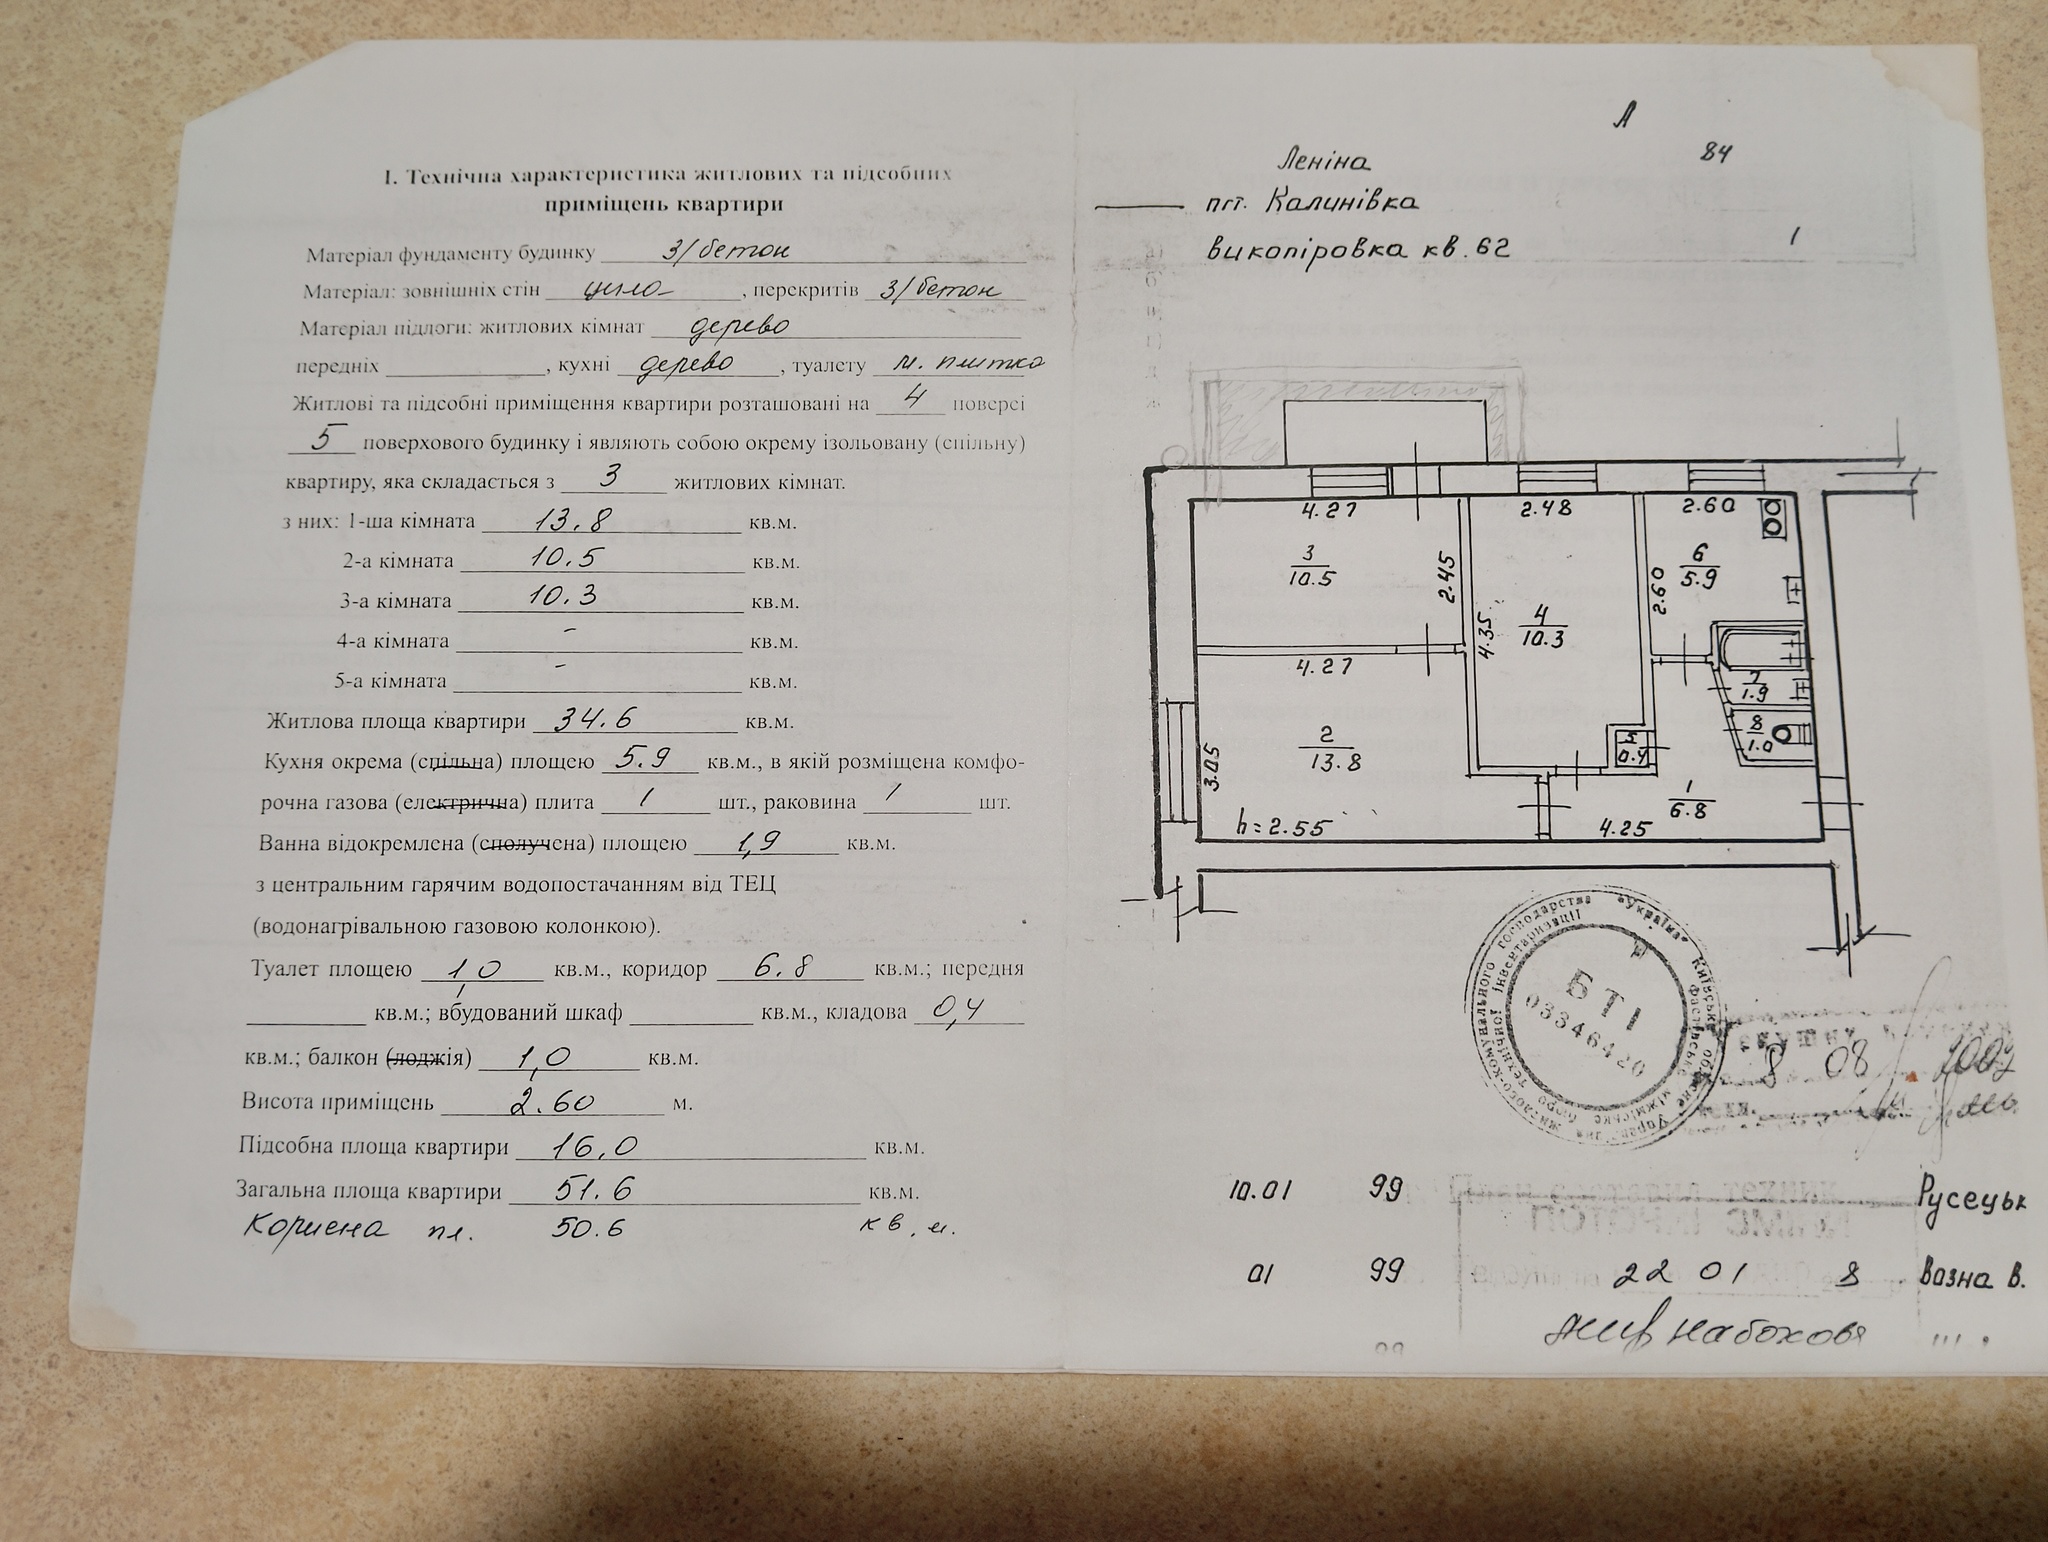 І. Технічна характеристика житлових та підсобних
приміщень квартири
Матеріал фундаменту будинку З/бетон
Матеріал: зовнішніх стін цегла, перекритів З/бетон
Матеріал підлоги: житлових кімнат дерево
передніх , кухні дерево , туалету м. плитка
Житлові та підсобні приміщення квартири розташовані на 4 поверсі
5 поверхового будинку і являють собою окрему ізольовану (спільну)
квартиру, яка складається з 3 житлових кімнат.
з них: 1-ша кімната 13.8 кв.м.
2-а кімната 10.5 кв.м.
3-а кімната 10.3 кв.м.
4-а кімната - кв.м.
5-а кімната - кв.м.
Житлова площа квартири 34.6 кв.м.
Кухня окрема (спільна) площею 5.9 кв.м., в якій розміщена комфо-
рочна газова (електрична) плита 1 шт., раковина 1 шт.
Ванна відокремлена (сполучена) площею 1,9 кв.м.
з центральним гарячим водопостачанням від ТЕЦ
(водонагрівальною газовою колонкою).
Туалет площею 1,0 кв.м., коридор 6.8 кв.м.; передня
кв.м.; вбудований шкаф кв.м., кладова 0,4
кв.м.; балкон (лоджія) 1,0 кв.м.
Висота приміщень 2.60 м.
Підсобна площа квартири 16,0 кв.м.
Загальна площа квартири 51.6 кв.м.
Корисна пл. 50.6 кв.м.
А
Леніна 84
пгт. Калинівка
викопіровка кв. 62 1
4.27 2.48 2.60
3
10.5
2.45
6
5.9
2.60
4
10.3
4.35
4.27
7
1.9
8
1.0
5
0.4
2
13.8
3.05
1
6.8
h=2.55
4.25
"Україна" Київське обласне
житлово-комунального господарства
Фастівське міжміське бюро технічної інвентаризації
БТІ
03346420
8 08
10.01 99 Русецьк
01 99 22 01 8 Вазна В.